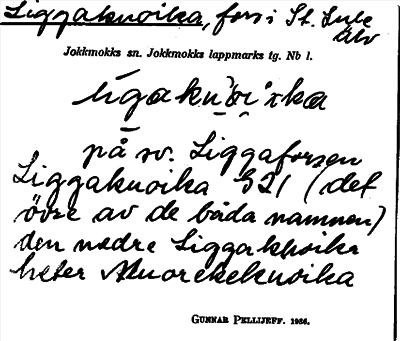 Liggakuoika, fors i St. Lule
älv
Jokkmokks sn. Jokkmokks lappmarks tg. Nb l.
på sv. Liggaforsen
Liggakuoika S21 (det
övre av de båda namnen)
den nedre Liggakuoika
heter Muorekekuoika
GUNNAR PELLIJEFF. 1936.